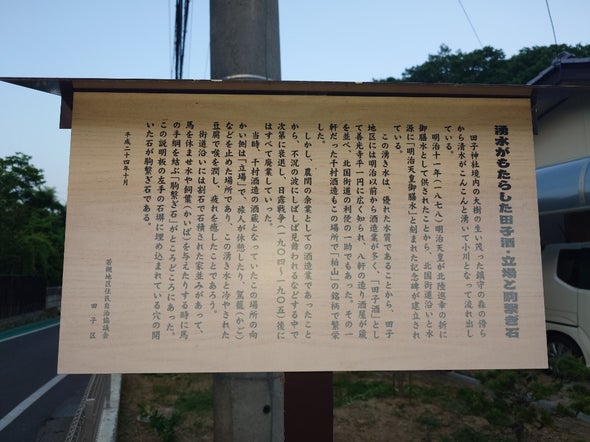 湧水がもたらした田子酒・立場と駒繋ぎ石
田子神社境内の大樹の生い茂った鎮守の森の傍ら
から清水がこんこんと湧いて小川となって流れ出し
ている。
明治十一年（一八七八）明治天皇が北陸巡幸の折に
御膳水として供されたことから、北国街道沿いと水
源に「明治天皇御膳水」と刻まれた記念碑が建立され
ている。
この湧き水は、優れた水質であることから、田子
地区には明治以前から酒造業が多く、「田子酒」とし
て善光寺平一円に広く知られ、八軒の造り酒屋が蔵
を並べ、北国街道の利便の一助でもあった。その一
軒だった千村酒造もこの場所で「柏山」の銘柄で繁栄
した。
しかし、農間の余業としての酒造業であったこと
から、不況の波にしばしば見舞われるなどする中で
次第に衰退し、日露戦争（一九〇四～一九〇五）後に
はすべて廃業していった。
当時、千村酒造の酒蔵となっていたこの場所の向
かい側は「立場」で、旅人が休憩したり、駕籠（かご）
などを止めた場所であり、この湧き水と冷やされた
豆腐で喉を潤し、疲れを癒したことであろう。
街道沿いには割石で石積された家並みがあって、
馬を休ませ水や飼葉（かいば）を与えたりする時に馬
の手綱を結ぶ「駒繋ぎ石」がところどころにあった。
この説明板の左手の石塀に埋め込まれている穴の開
いた石が駒繋ぎ石である。
平成二十四年十月
若槻地区住民自治協議会
田子区